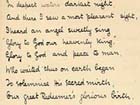 In deepest winters darkest night
And then I saw a most pleasent sight,
I heard an angel sweetly sing
Glory to God our heavenly King
Glory to God and peace to man
Who united thus on earth began
To solemnise the sacred mirth
Our great Redeemer's glorious birth